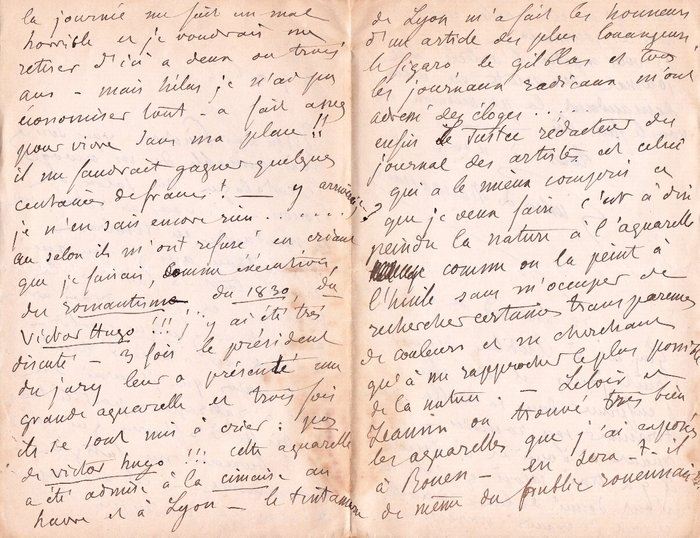 la journée me fait un mal
horrible et je voudrais me
retirer d'ici a deux ou trois
ans - mais hélas je n'ai pas
économiser tout - a fait assez
pour vivre sans ma place !!
il me faudrait gagner quelques
centaines de francs ! — y arriverai-je ?
je n'en sais encore rien ........
au salon ils m'ont refusé en criant
que je faisais, comme exécution,
du romantisme du 1830 du
Victor Hugo !!! j'y ai été très
discuté - 3 fois le président
du jury leur a présenté une
grande aquarelle et trois fois
ils se sont mis à crier : pas
de Victor Hugo !!! cette aquarelle
a été admise à la cimaise au
havre et à Lyon - le tintamarre
de Lyon m'a fait les honneurs
d'un article des plus louangeurs
le figaro le gilblas et tous
les journaux radicaux m'ont
adressé des éloges .....
enfin le Juste rédacteur du
journal des artistes est celui
qui a le mieux compris ce
que je veux faire c'est à dire
peindre la nature à l'aquarelle
comme on la peint à
l'huile sans m'occuper de
rechercher certaines transparences
de couleurs et ne cherchant
qu'à me rapprocher le plus possible
de la nature. — Leloir et
Jeannin ont trouvé très bien
les aquarelles que j'ai exposées
à Rouen - en sera-t-il
de même du public rouennais